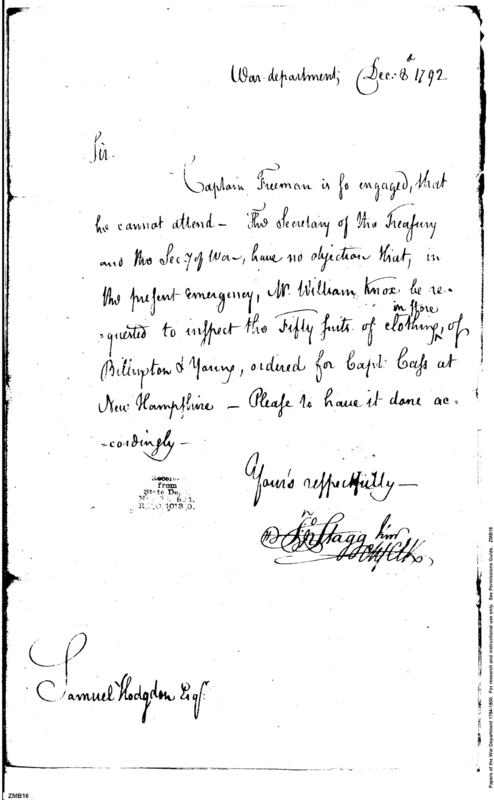 War department, Dec: 8th 1792
Sir.
Captain Freeman is so engaged, that
he cannot attend – The Secretary of the Treasury
and the Secy of War, have no objection that, in
the present emergency, Mr. William Knox be re=
=quested to inspect the Fifty suits of clothing, in store of
Bilington & Young, ordered for Capt: Cass at
New Hampshire – Please to have it done ac=
=cordingly –
Yours respectfully –
Jno Stagg Junr
Ch Clk
Samuel Hodgdon Esqr
Received
from
State De
ZMB16
Papers of the War Department 1784-1800. For research and instructional use only. See Permissions Guide. ZMB16